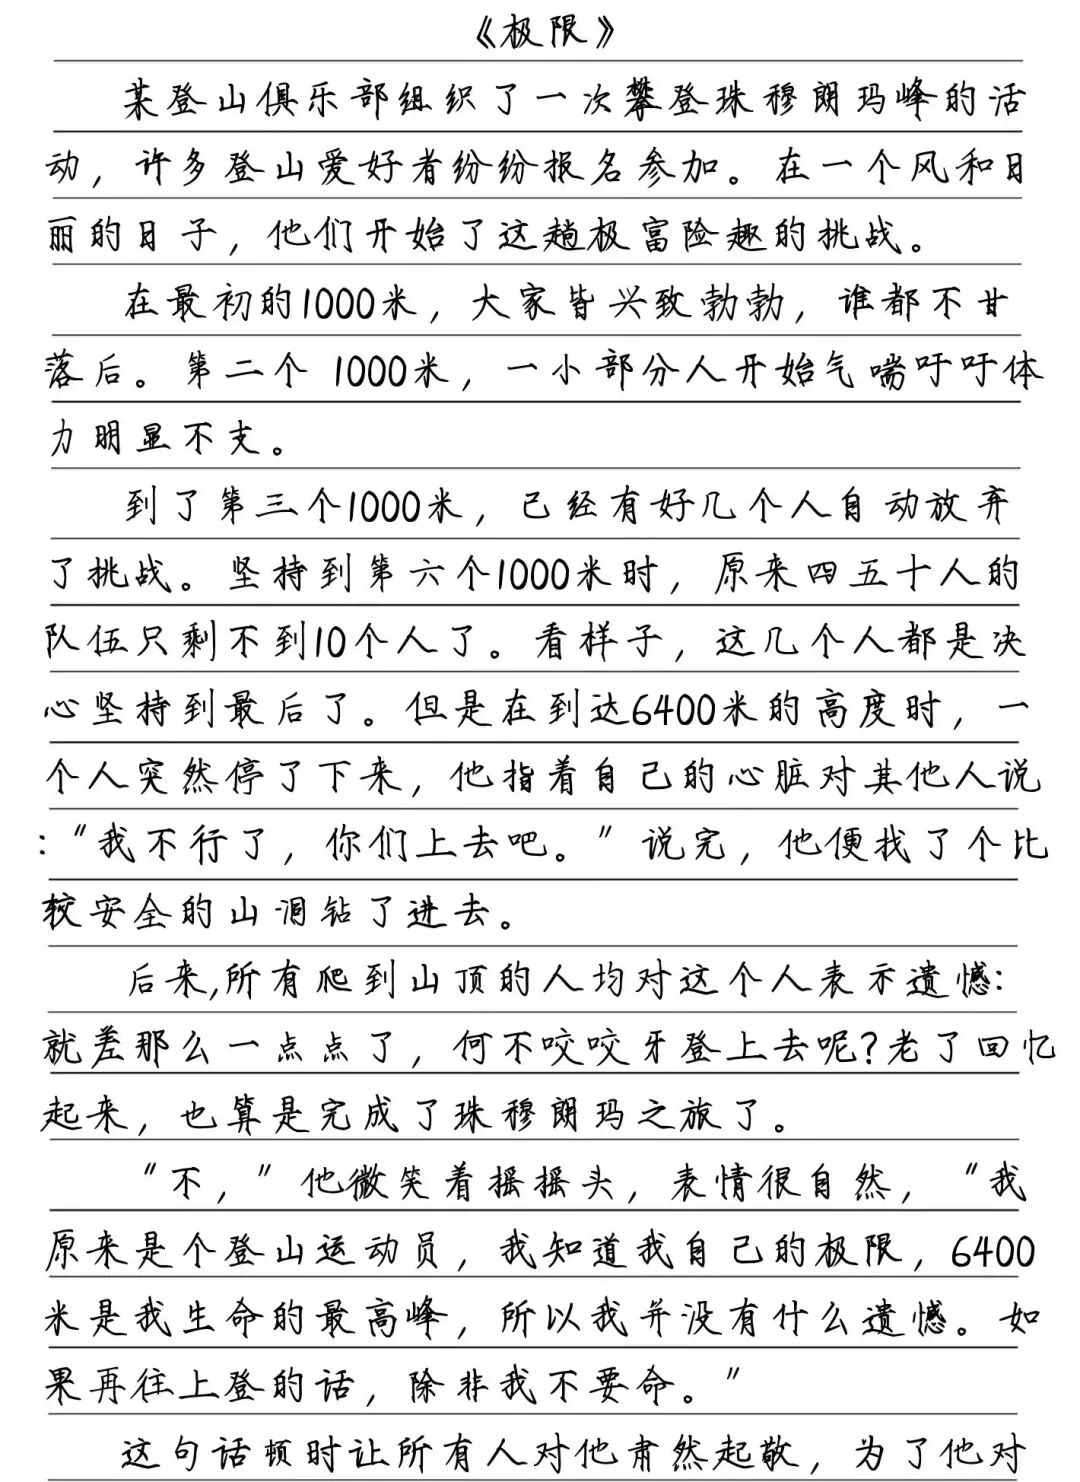 《极限》
某登山俱乐部组织了一次攀登珠穆朗玛峰的活
动，许多登山爱好者纷纷报名参加。在一个风和日
丽的日子，他们开始了这趟极富险趣的挑战。
在最初的1000米，大家皆兴致勃勃，谁都不甘
落后。第二个 1000米，一小部分人开始气喘吁吁体
力明显不支。
到了第三个1000米，已经有好几个人自动放弃
了挑战。坚持到第六个1000米时，原来四五十人的
队伍只剩不到10个人了。看样子，这几个人都是决
心坚持到最后了。但是在到达6400米的高度时，一
个人突然停了下来，他指着自己的心脏对其他人说
：“我不行了，你们上去吧。”说完，他便找了个比
较安全的山洞钻了进去。
后来,所有爬到山顶的人均对这个人表示遗憾:
就差那么一点点了，何不咬咬牙登上去呢?老了回忆
起来，也算是完成了珠穆朗玛之旅了。
“不，”他微笑着摇摇头，表情很自然，“我
原来是个登山运动员，我知道我自己的极限，6400
米是我生命的最高峰，所以我并没有什么遗憾。如
果再往上登的话，除非我不要命。”
这句话顿时让所有人对他肃然起敬，为了他对